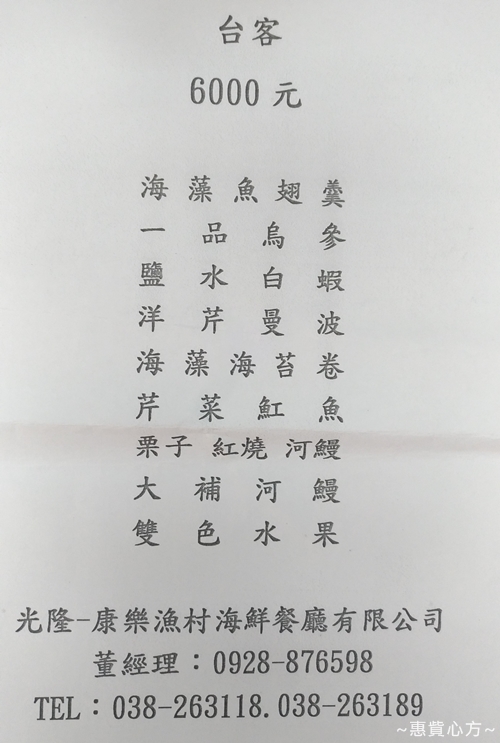 台客
6000 元
海藻魚翅羹
一品烏參
鹽水白蝦
洋芹曼波
海藻海苔卷
芹菜魟魚
栗子 紅燒 河鰻
大補河鰻
雙色水果
光隆-康樂漁村海鮮餐廳有限公司
董經理：0928-876598
TEL：038-263118.038-263189
~惠貲心方~